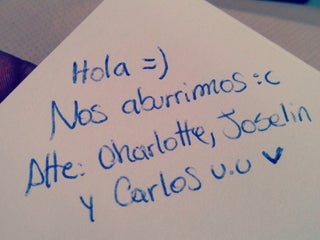 Hola =)
Nos aburrimos :c
Atte: Charlotte, Joselin
y Carlos u.u ✓